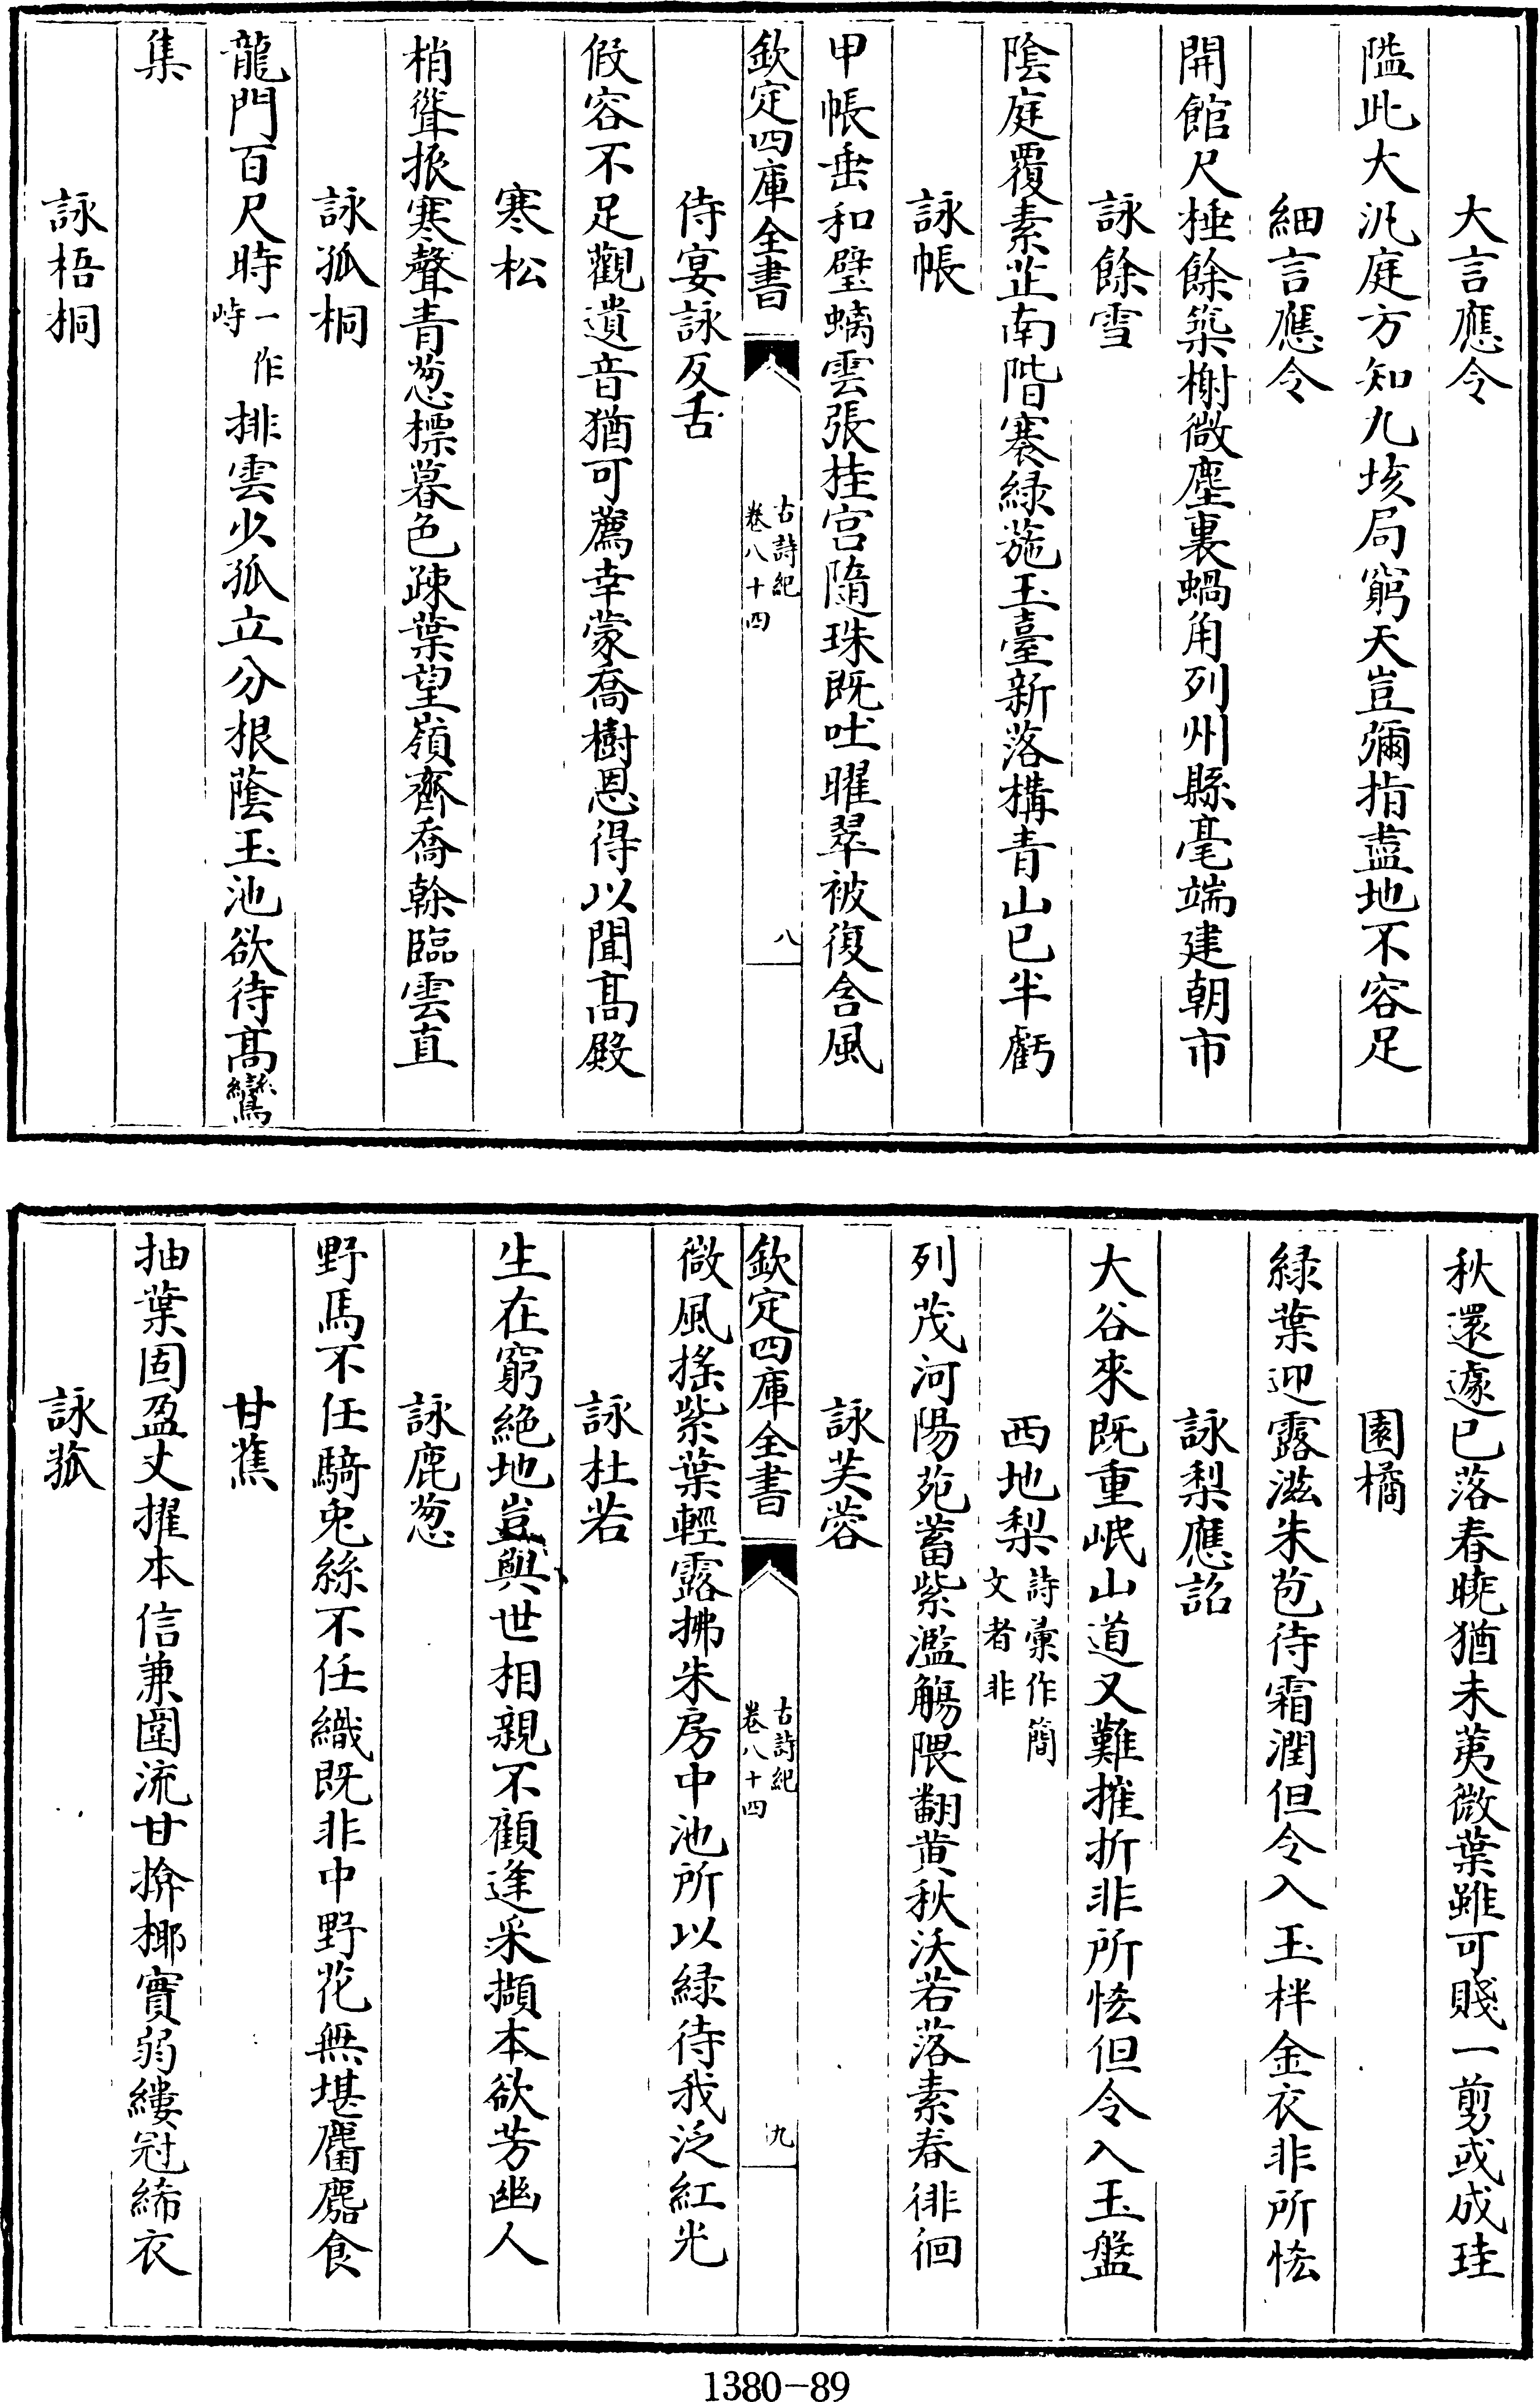 大言應令
隘此大汎庭方知九垓局窮天豈彌指盡地不容足
細言應令
開館尺棰餘築榭微塵裏蝸角列州縣毫端建朝市
詠餘雪
陰庭覆素芷南階褰緑葹玉臺新落構青山已半虧
詠帳
甲帳垂和璧螭雲張桂宫隨珠既吐曜翠被復含風
欽定四庫全書
古詩紀
卷八十四
八
侍宴詠反舌
假容不足觀遺音猶可薦幸蒙喬樹恩得以聞髙殿
寒松
梢聳振寒聲青葱標暮色疎葉望嶺齊喬榦臨雲直
詠孤桐
龍門百尺時一作峙排雲少孤立分根蔭玉池欲待髙鸞
集
詠梧桐
秋還遽已落春曉猶未荑微葉雖可賤一剪或成珪
園橘
緑葉迎露滋朱苞待霜潤但令入玉柈金衣非所恡
詠梨應詔
大谷來既重岷山道又難摧折非所恡但令入玉盤
西地梨詩彙作簡文者非
列茂河陽苑蓄紫濫觴隈翻黄秋沃若落素春徘徊
詠芙蓉
欽定四庫全書
古詩紀
卷八十四
九
微風揺紫葉輕露拂朱房中池所以緑待我泛紅光
詠杜若
生在窮絶地豈與世相親不顧逢采擷本欲芳幽人
詠鹿葱
野馬不任騎兎絲不任織既非中野花無堪麕麚食
甘蕉
抽葉固盈丈擢本信兼圍流甘揜椰實弱縷冠絺衣
詠菰